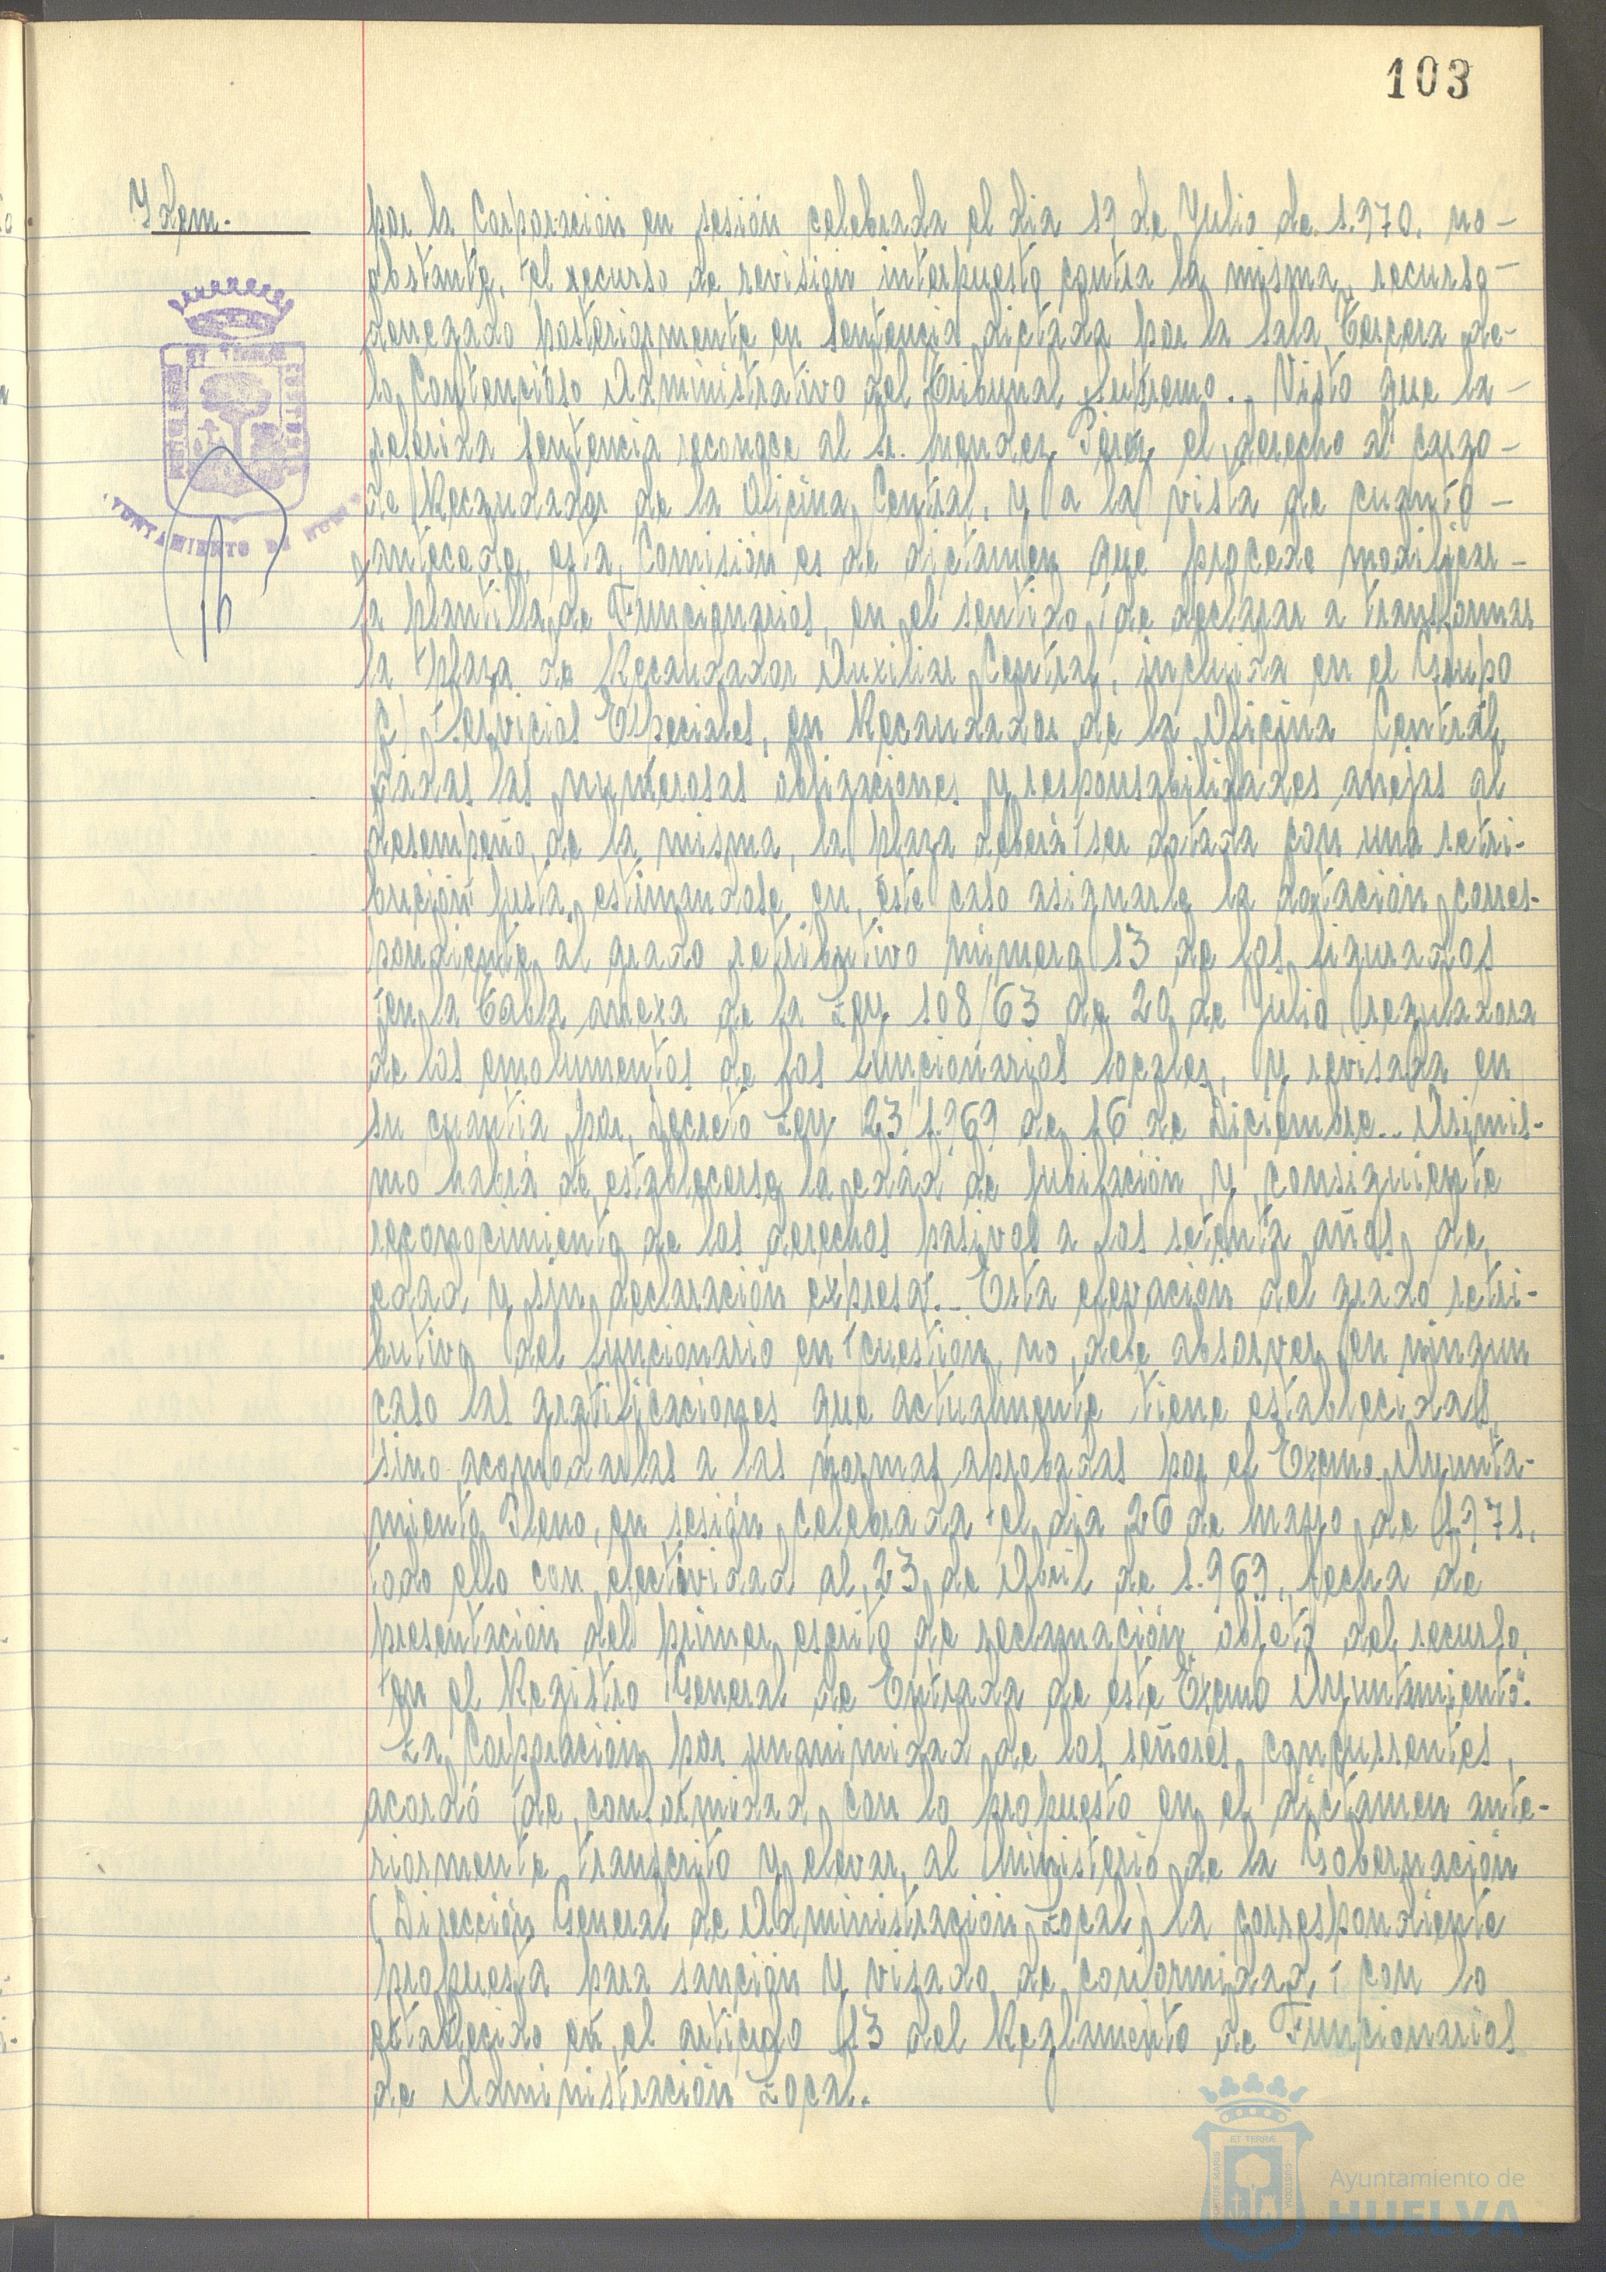 103
Ydem.
por la Corporación en sesión celebrada el dia 19 de Julio de 1.970. no-
obstante, el recurso de revisión interpuesto contra la misma, recurso-
denegado posteriormente en sentencia dictada por la Sala Tercera de-
lo Contencioso Administrativo del Tribunal Supremo.. Visto que la-
referida sentencia reconoce al Sr. Mendez Pérez el derecho al cargo-
de Recaudador de la Oficina Central, y a la vista de cuanto-
antecede, esta Comisión es de dictamen que procede modificar-
la plantilla de Funcionarios, en el sentido de declarar a transformar
la plaza de Recaudador Auxiliar Central, incluida en el Grupo
C) Servicios Especiales, en Recaudador de la Oficina Central,
dadas las numerosas obligaciones y responsabilidades anejas al
desempeño de la misma, la plaza deberá ser dotada con una retri-
bución justa, estimandose en este caso asignarle la dotación corres-
pondiente al grado retributivo número 13 de los figurados
en la tabla anexa de la Ley 108/63 de 20 de Julio, reguladora
de los emolumentos de los funcionarios locales, y revisada en
su cuantia por Decreto Ley 23/1.969 de 16 de Diciembre.. Asimis-
mo habrá de establecerse la edad de jubilación y consiguiente
reconocimiento de los derechos pasivos a los setenta años de
edad y sin declaración expresa.- Esta elevación del grado retri-
butivo del funcionario en cuestión, no debe absorver en ningun
caso las gratificaciones que actualmente tiene establecidas,
sino acomodarlas a las normas aprobadas por el Excmo. Ayunta-
miento Pleno, en sesión celebrada el dia 26 de marzo de 1.971.
todo ello con efectividad al 23 de Abril de 1.969, fecha de
presentación del primer escrito de reclamación objeto del recurso,
en el Registro General de Entrada de este Excmo Ayuntamiento".
La Corporación por unanimidad de los señores concurrentes,
acordó de conformidad con lo propuesto en el dictamen ante-
riormente transcrito y elevar al Ministerio de la Gobernación
(Dirección General de Administración Local) la correspondiente
propuesta para sanción y visado de conformidad con lo
establecido en el articulo 13 del Reglamento de Funcionarios
de Administración Local.
AYUNTAMIENTO DE HUELVA
ET TERRÆ
Ayuntamiento de
HUELVA